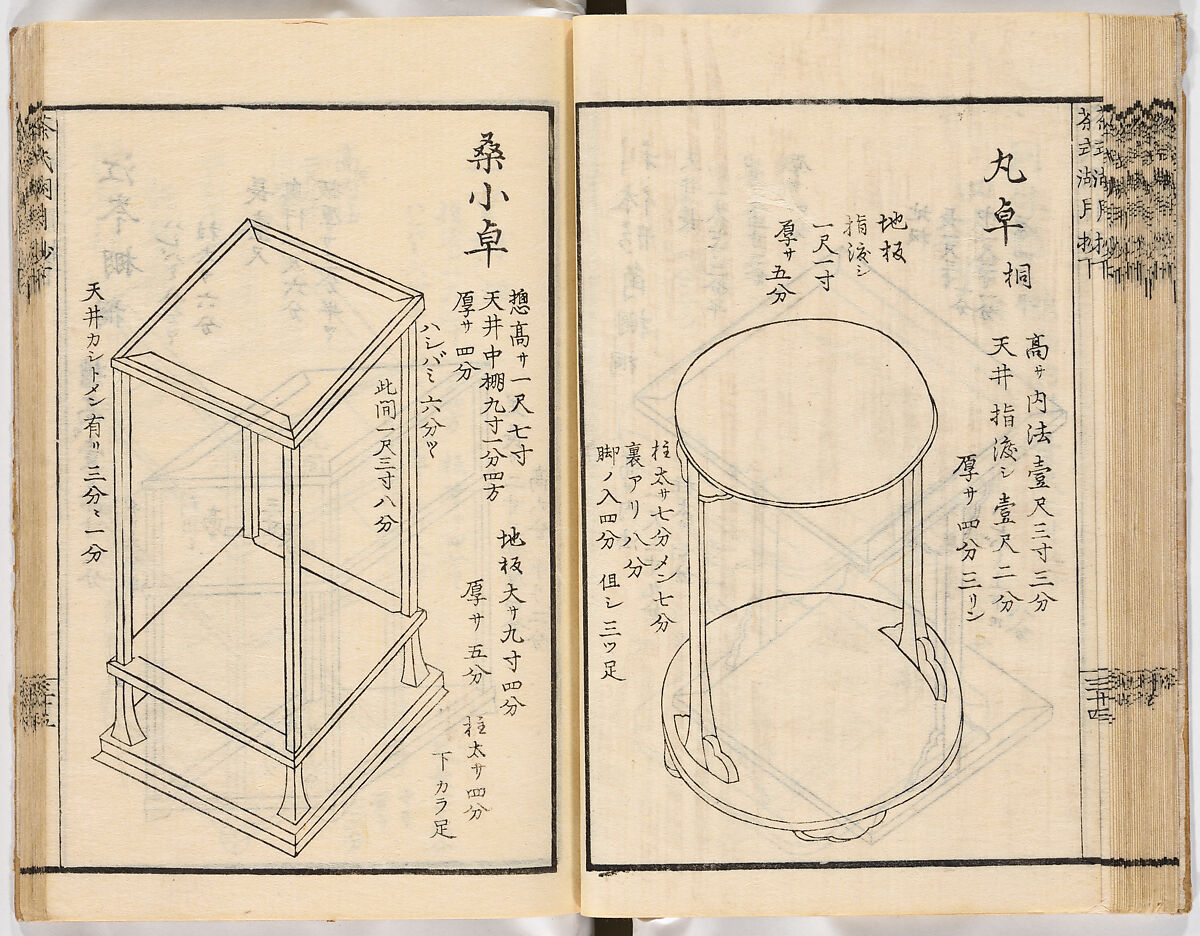 茶式湖月抄
三十四
丸卓 桐
高サ内法壹尺三寸三分
天井指渡シ壹尺二分
厚サ四分三リン
地板
指渡シ
一尺一寸
厚サ五分
柱太サ七分メン七分
裏アリ八分
脚ノ入四分 但シ三ツ足
桑小卓
摠高サ一尺七寸
天井中棚九寸一分四方
厚サ四分
ハシバミ六分ツヽ
此間一尺三寸八分
地板大サ九寸四分
厚サ五分
柱太サ四分
下カラ足
天井カシトメン有リ三分ニ一分
三十五